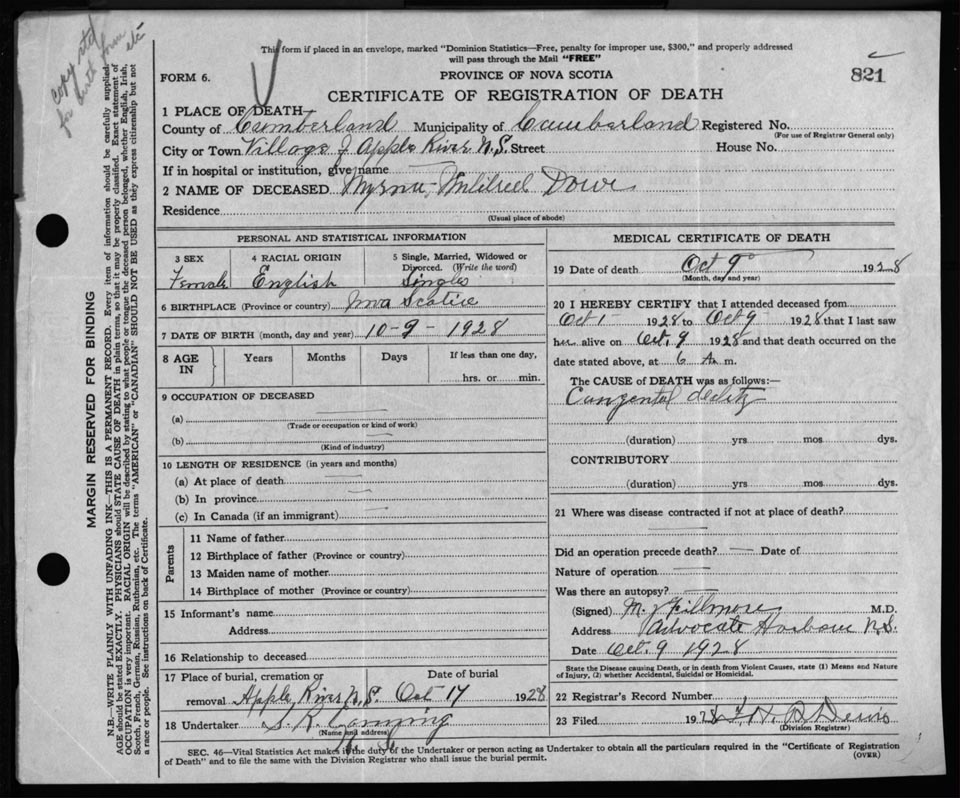 copy std
for birth form
etc
This form if placed in an envelope, marked "Dominion Statistics—Free, penalty for improper use, $300," and properly addressed
will pass through the Mail "FREE"
FORM 6.
PROVINCE OF NOVA SCOTIA
821
CERTIFICATE OF REGISTRATION OF DEATH
1 PLACE OF DEATH
County of Cumberland Municipality of Cumberland Registered No.
(For use of Registrar General only)
City or Town Village of Apple River N.S. Street House No.
If in hospital or institution, give name
2 NAME OF DECEASED Myrna Mildred Dowe
Residence
(Usual place of abode)
PERSONAL AND STATISTICAL INFORMATION
3 SEX 4 RACIAL ORIGIN 5 Single, Married, Widowed or
Divorced. (Write the word)
Female English Single
6 BIRTHPLACE (Province or country) Nova Scotia
7 DATE OF BIRTH (month, day and year) 10-9-1928
8 AGE IN Years Months Days If less than one day,
hrs. or min.
9 OCCUPATION OF DECEASED
(a)
(Trade or occupation or kind of work)
(b)
(Kind of industry)
10 LENGTH OF RESIDENCE (in years and months)
(a) At place of death
(b) In province
(c) In Canada (if an immigrant)
Parents
11 Name of father
12 Birthplace of father (Province or country)
13 Maiden name of mother
14 Birthplace of mother (Province or country)
15 Informant's name
Address
16 Relationship to deceased
17 Place of burial, cremation or Date of burial
removal Apple River N.S. Oct 17 1928
18 Undertaker S. R.
(Name and address)
MEDICAL CERTIFICATE OF DEATH
19 Date of death Oct 9 1928
(Month, day and year)
20 I HEREBY CERTIFY that I attended deceased from
Oct 1 1928 to Oct 9 1928 that I last saw
her alive on Oct. 9 1928 and that death occurred on the
date stated above, at 6 A. m.
The CAUSE of DEATH was as follows:—
Congental
(duration) yrs mos dys.
CONTRIBUTORY
(duration) yrs mos dys.
21 Where was disease contracted if not at place of death?
Did an operation precede death? — Date of
Nature of operation
Was there an autopsy?
(Signed) M. Fillmore M.D.
Address Advocate Harbour N.S.
Date Oct. 9 1928
State the Disease causing Death, or in death from Violent Causes, state (1) Means and Nature
of Injury, (2) whether Accidental, Suicidal or Homicidal.
22 Registrar's Record Number
23 Filed 19
(Division Registrar)
SEC. 46—Vital Statistics Act makes it the duty of the Undertaker or person acting as Undertaker to obtain all the particulars required in the "Certificate of Registration
of Death" and to file the same with the Division Registrar who shall issue the burial permit. (OVER)
MARGIN RESERVED FOR BINDING
N.B.—WRITE PLAINLY WITH UNFADING INK—THIS IS A PERMANENT RECORD. Every item of information should be carefully supplied.
AGE should be stated EXACTLY. PHYSICIANS should STATE CAUSE OF DEATH in plain terms, so that it may be properly classified. Exact statement of
OCCUPATION is very important. RACIAL ORIGIN will be described by stating to what people or tongue the deceased person belonged, whether English, Irish,
Scotch, French, German, Russian, Ruthenian, etc. The terms "AMERICAN" or "CANADIAN" SHOULD NOT BE USED as they express citizenship but not
a race or people. See instructions on back of Certificate.